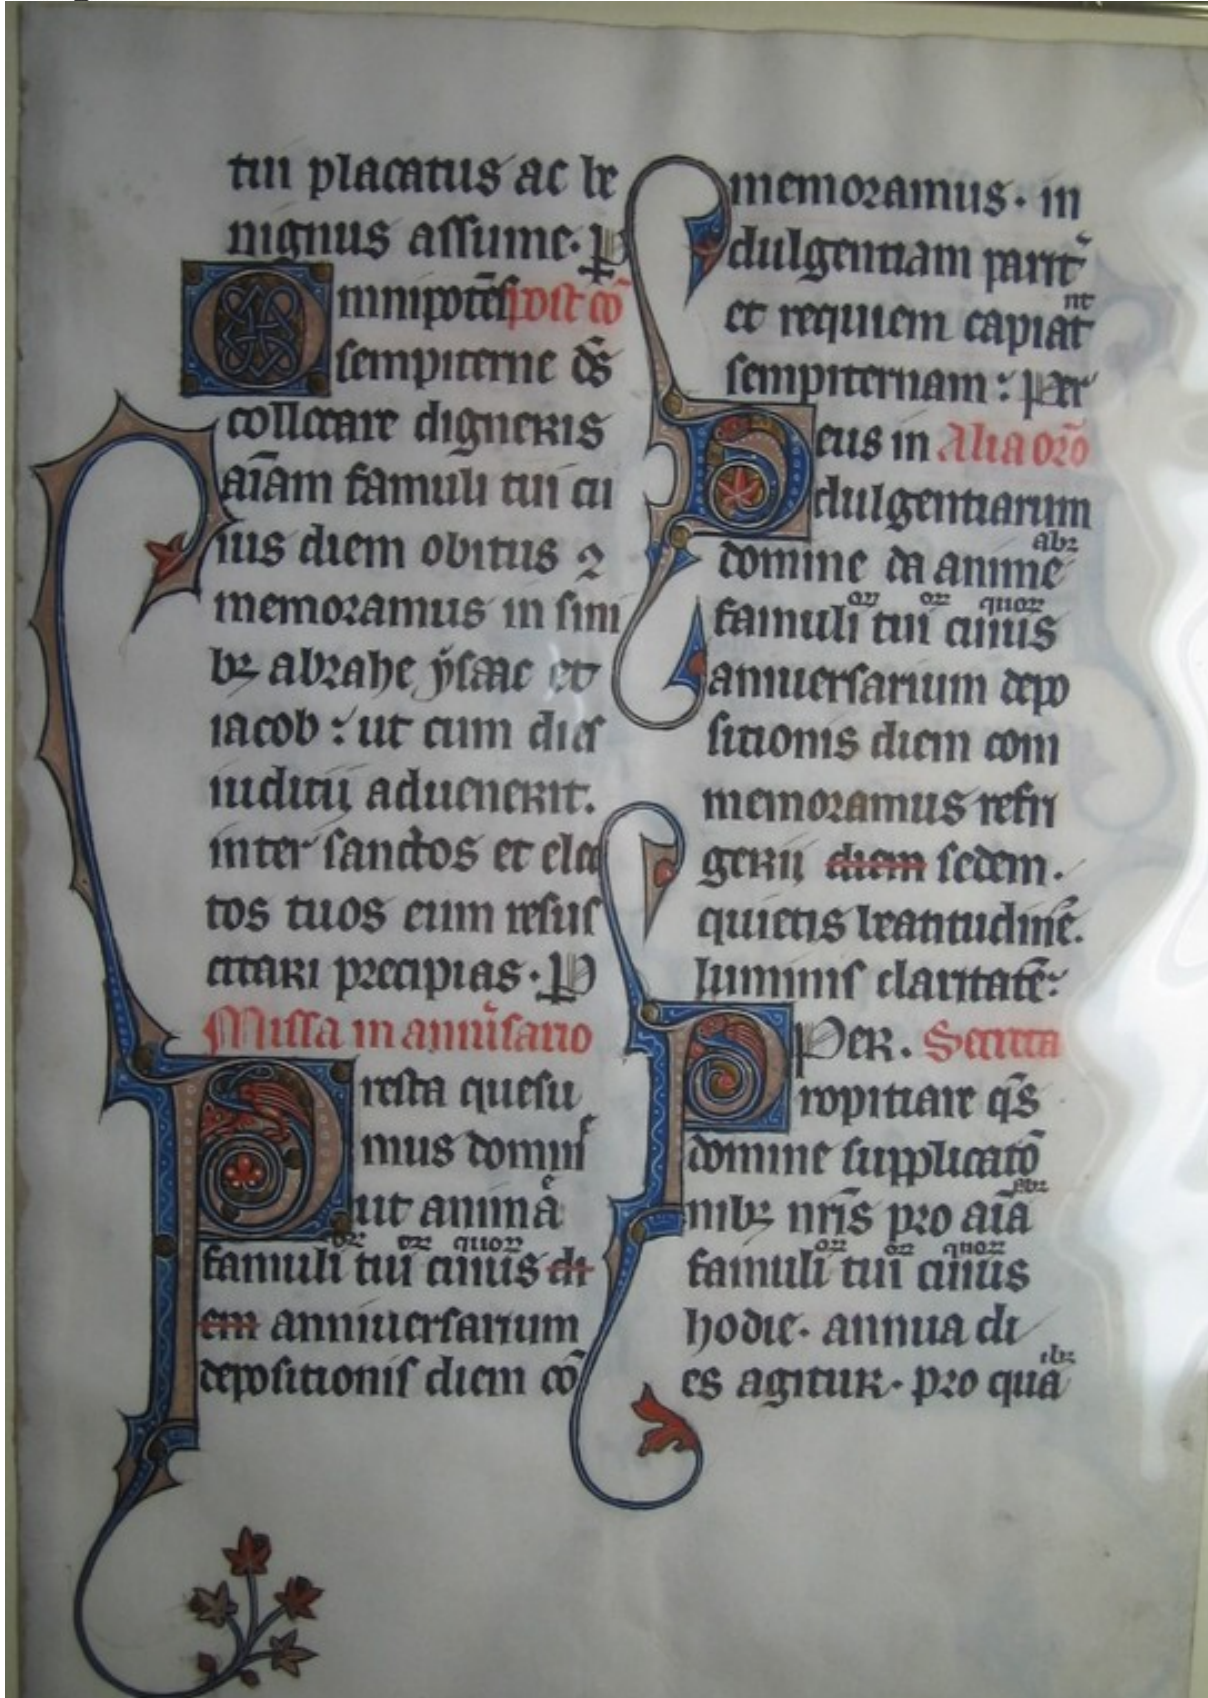 tui placatus ac be
nignus assume. P
Omnipotēs post cō
sempiterne d̄s
collocare digneris
aīam famuli tui cu
ius diem obitus ꝯ
memoramus in sini
bꝫ abrahe ẏsaac et
iacob : ut cum dies
iuditij aduenerit.
inter sanctos et elec
tos tuos eum resus
citari precipias. P
Missa in anniu̾sario
Presta quesu
mus domine
ut animā
famuli tui cuius di
em anniuersarium
depositionis diem cō
memoramus. in
dulgentiam parit̾
et requiem capiat nt
sempiternam : Per
Deus in Alia orō
dulgentiarum
domine da anime abꝫ
famuli tui cuius oꝝ oꝝ quoꝝ
anniuersarium depo
sitionis diem com
memoramus refri
gerij diem sedem.
quietis beatitudinē.
luminis claritatē:
Per. Secreta
Propitiare q̄s
domine supplicatō
nibꝫ nr̄is pro aīa abꝫ
famuli tui cuius oꝝ oꝝ quoꝝ
hodie. annua di
es agitur. pro qua ibꝫ